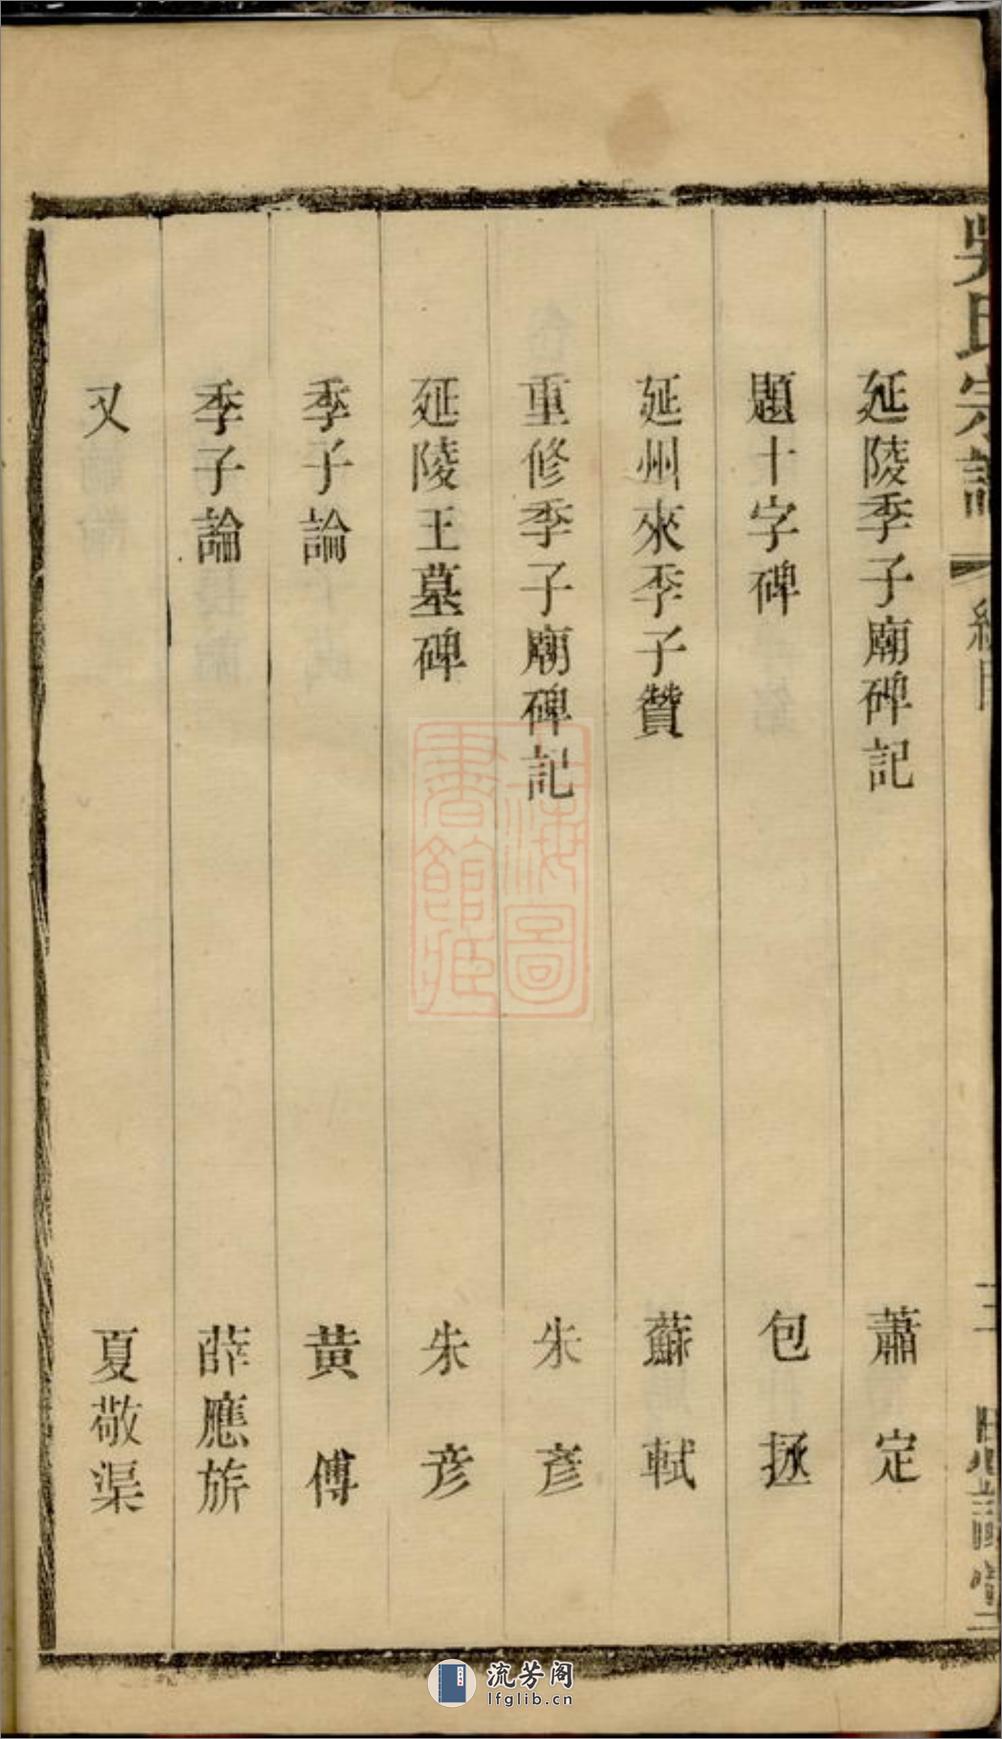 吳氏宗譜
總目
三
思讓堂
延陵季子廟碑記 蕭定
題十字碑 包拯
延州來季子贊 蘇軾
重修季子廟碑記 朱彥
延陵王墓碑 朱彥
季子論 黃傅
季子論 薛應旂
又 夏敬渠
上海圖書館藏
流芳阁
lfglib.cn